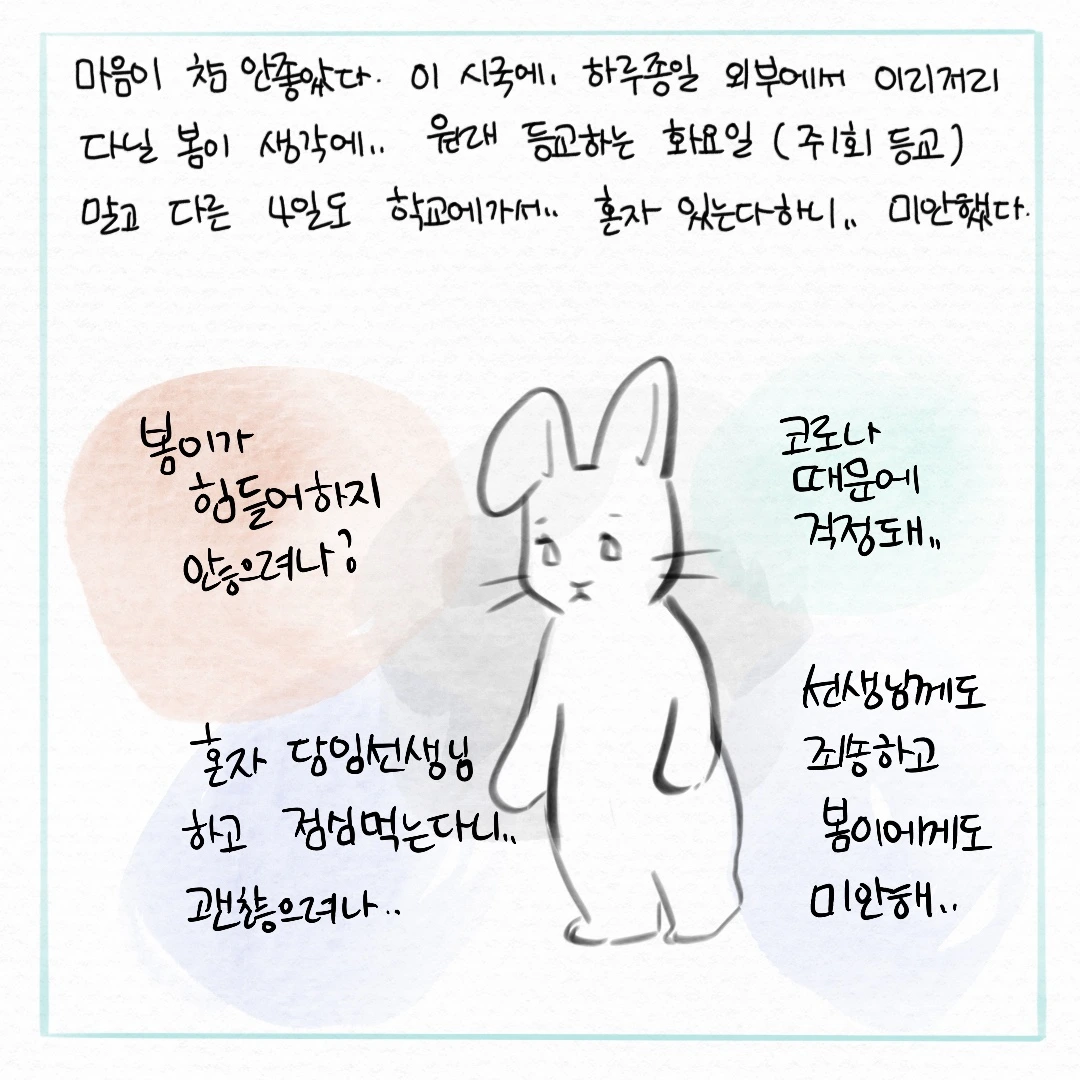 마음이 참 안좋았다. 이 시국에, 하루종일 외부에서 이리저리
다닐 봄이 생각에.. 원래 등교하는 화요일 (주1회 등교)
말고 다른 4일도 학교에가서.. 혼자 있는다하니,, 미안했다.
봄이가
힘들어하지
안흥으려나?
코로나
때문에
걱정돼,,
혼자 담임선생님
하고 점심먹는다니..
괜찮흥으려나..
선생님께도
죄송하고
봄이에게도
미안해..